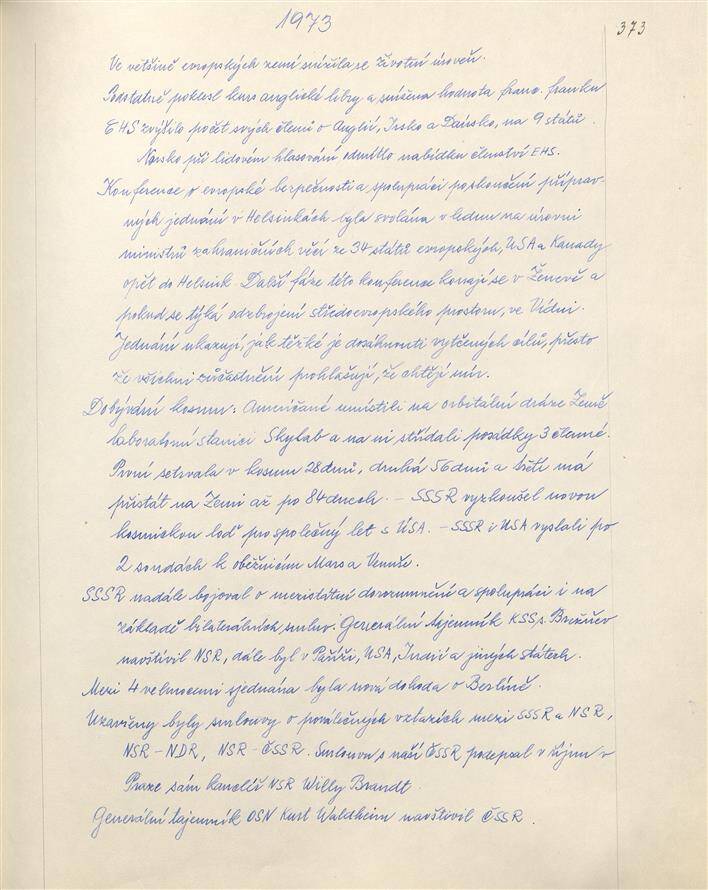 1973
373
Ve většině evropských zemí snížila se životní úroveň.
Podstatně poklesl kurs anglické libry a snížena hodnota franc. franku
EHS zvýšilo počet svých členů o Anglii, Irsko a Dánsko, na 9 států.
Norsko při lidovém hlasování odmítlo nabídku členství EHS.
Konference o evropské bezpečnosti a spolupráci po skončení příprav-
ných jednání v Helsinkách byla svolána v lednu na úrovni
ministrů zahraničních věcí ze 34 států evropských, USA a Kanady
opět do Helsink. Další fáze této konference konají se v Ženevě a
pokud se týká odzbrojení středoevropského prostoru, ve Vídni.
Jednání ukazují, jak těžké je dosáhnouti vytčených cílů, přesto
že všichni zúčastnění prohlašují, že chtějí mír.
Dobývání kosmu: Američané umístili na orbitální dráze Země
laboratorní stanici Skylab a na ní střídali posádky 3 členné.
První setrvala v kosmu 28 dnů, druhá 56 dnů a třetí má
přistát na Zemi až po 84 dnech. – SSSR vyzkoušel novou
kosmickou loď pro společný let s USA. – SSSR i USA vyslali po
2 sondách k oběžnicím Mars a Venuše.
SSSR nadále bojoval o mezistátní dorozumnění a spolupráci i na
základě bilaterálních smluv. Generální tajemník KSSS. Brežněv
navštívil NSR, dále byl v Paříži, USA, Indii a jiných státech.
Mezi 4 velmocemi sjednána byla nová dohoda o Berlíně.
Uzavřeny byly smlouvy o poválečných vztazích mezi SSSR a NSR,
NSR – NDR, NSR – ČSSR. Smlouvu s naší ČSSR podepsal v říjnu v
Praze sám kancléř NSR Willy Brandt.
Generální tajemník OSN Kurt Waldheim navštívil ČSSR.